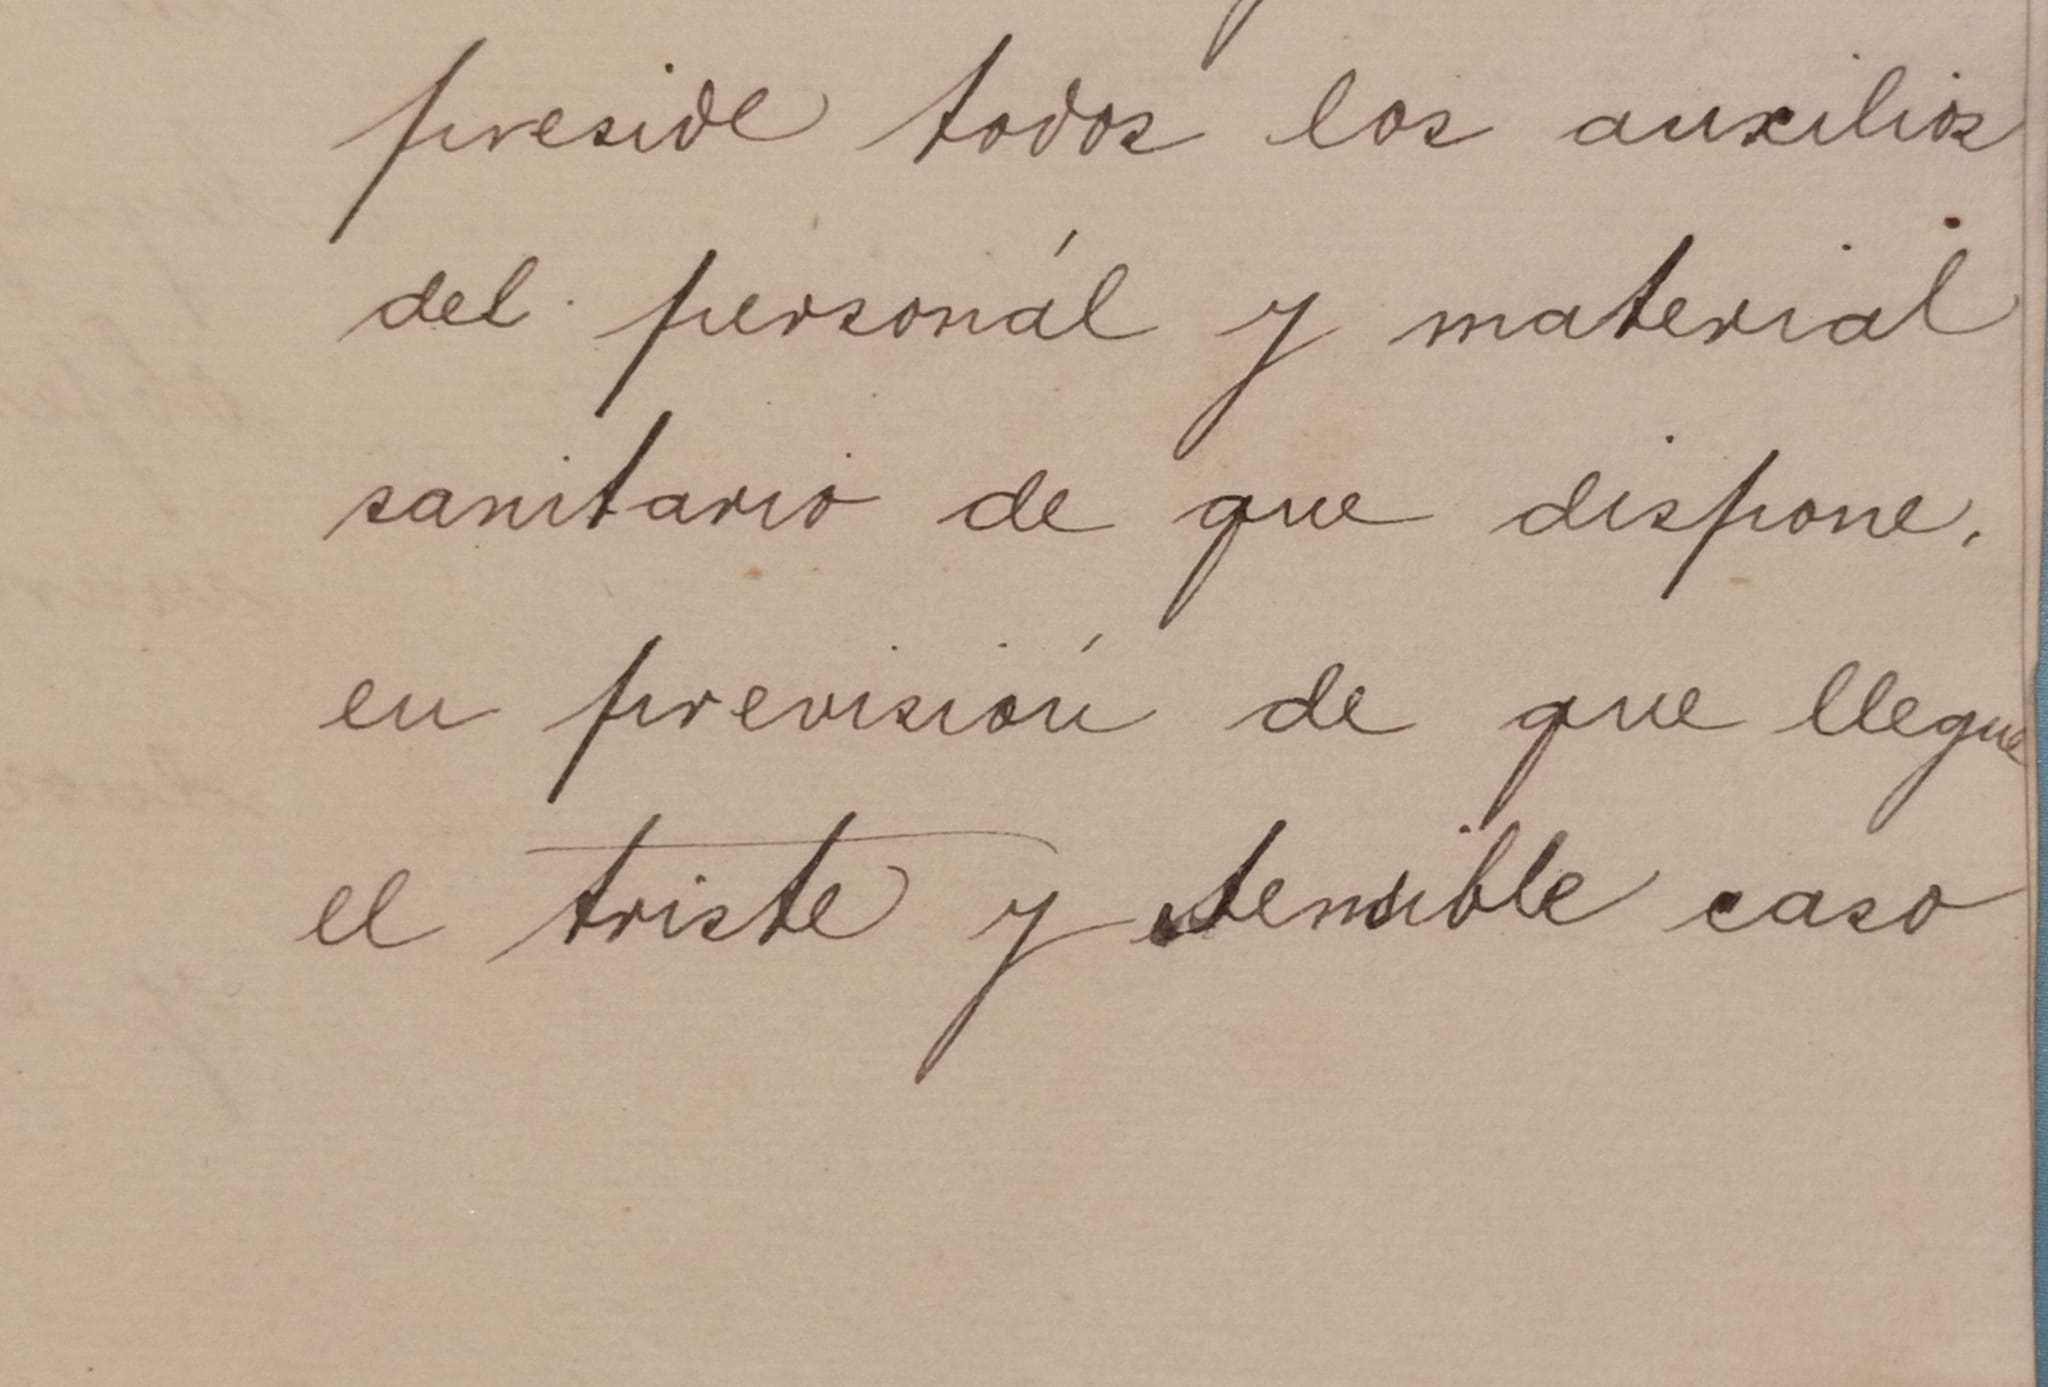 preside todos los auxilios
del personál y material
sanitario de que dispone,
en previsión de que llegue
el triste y sensible caso